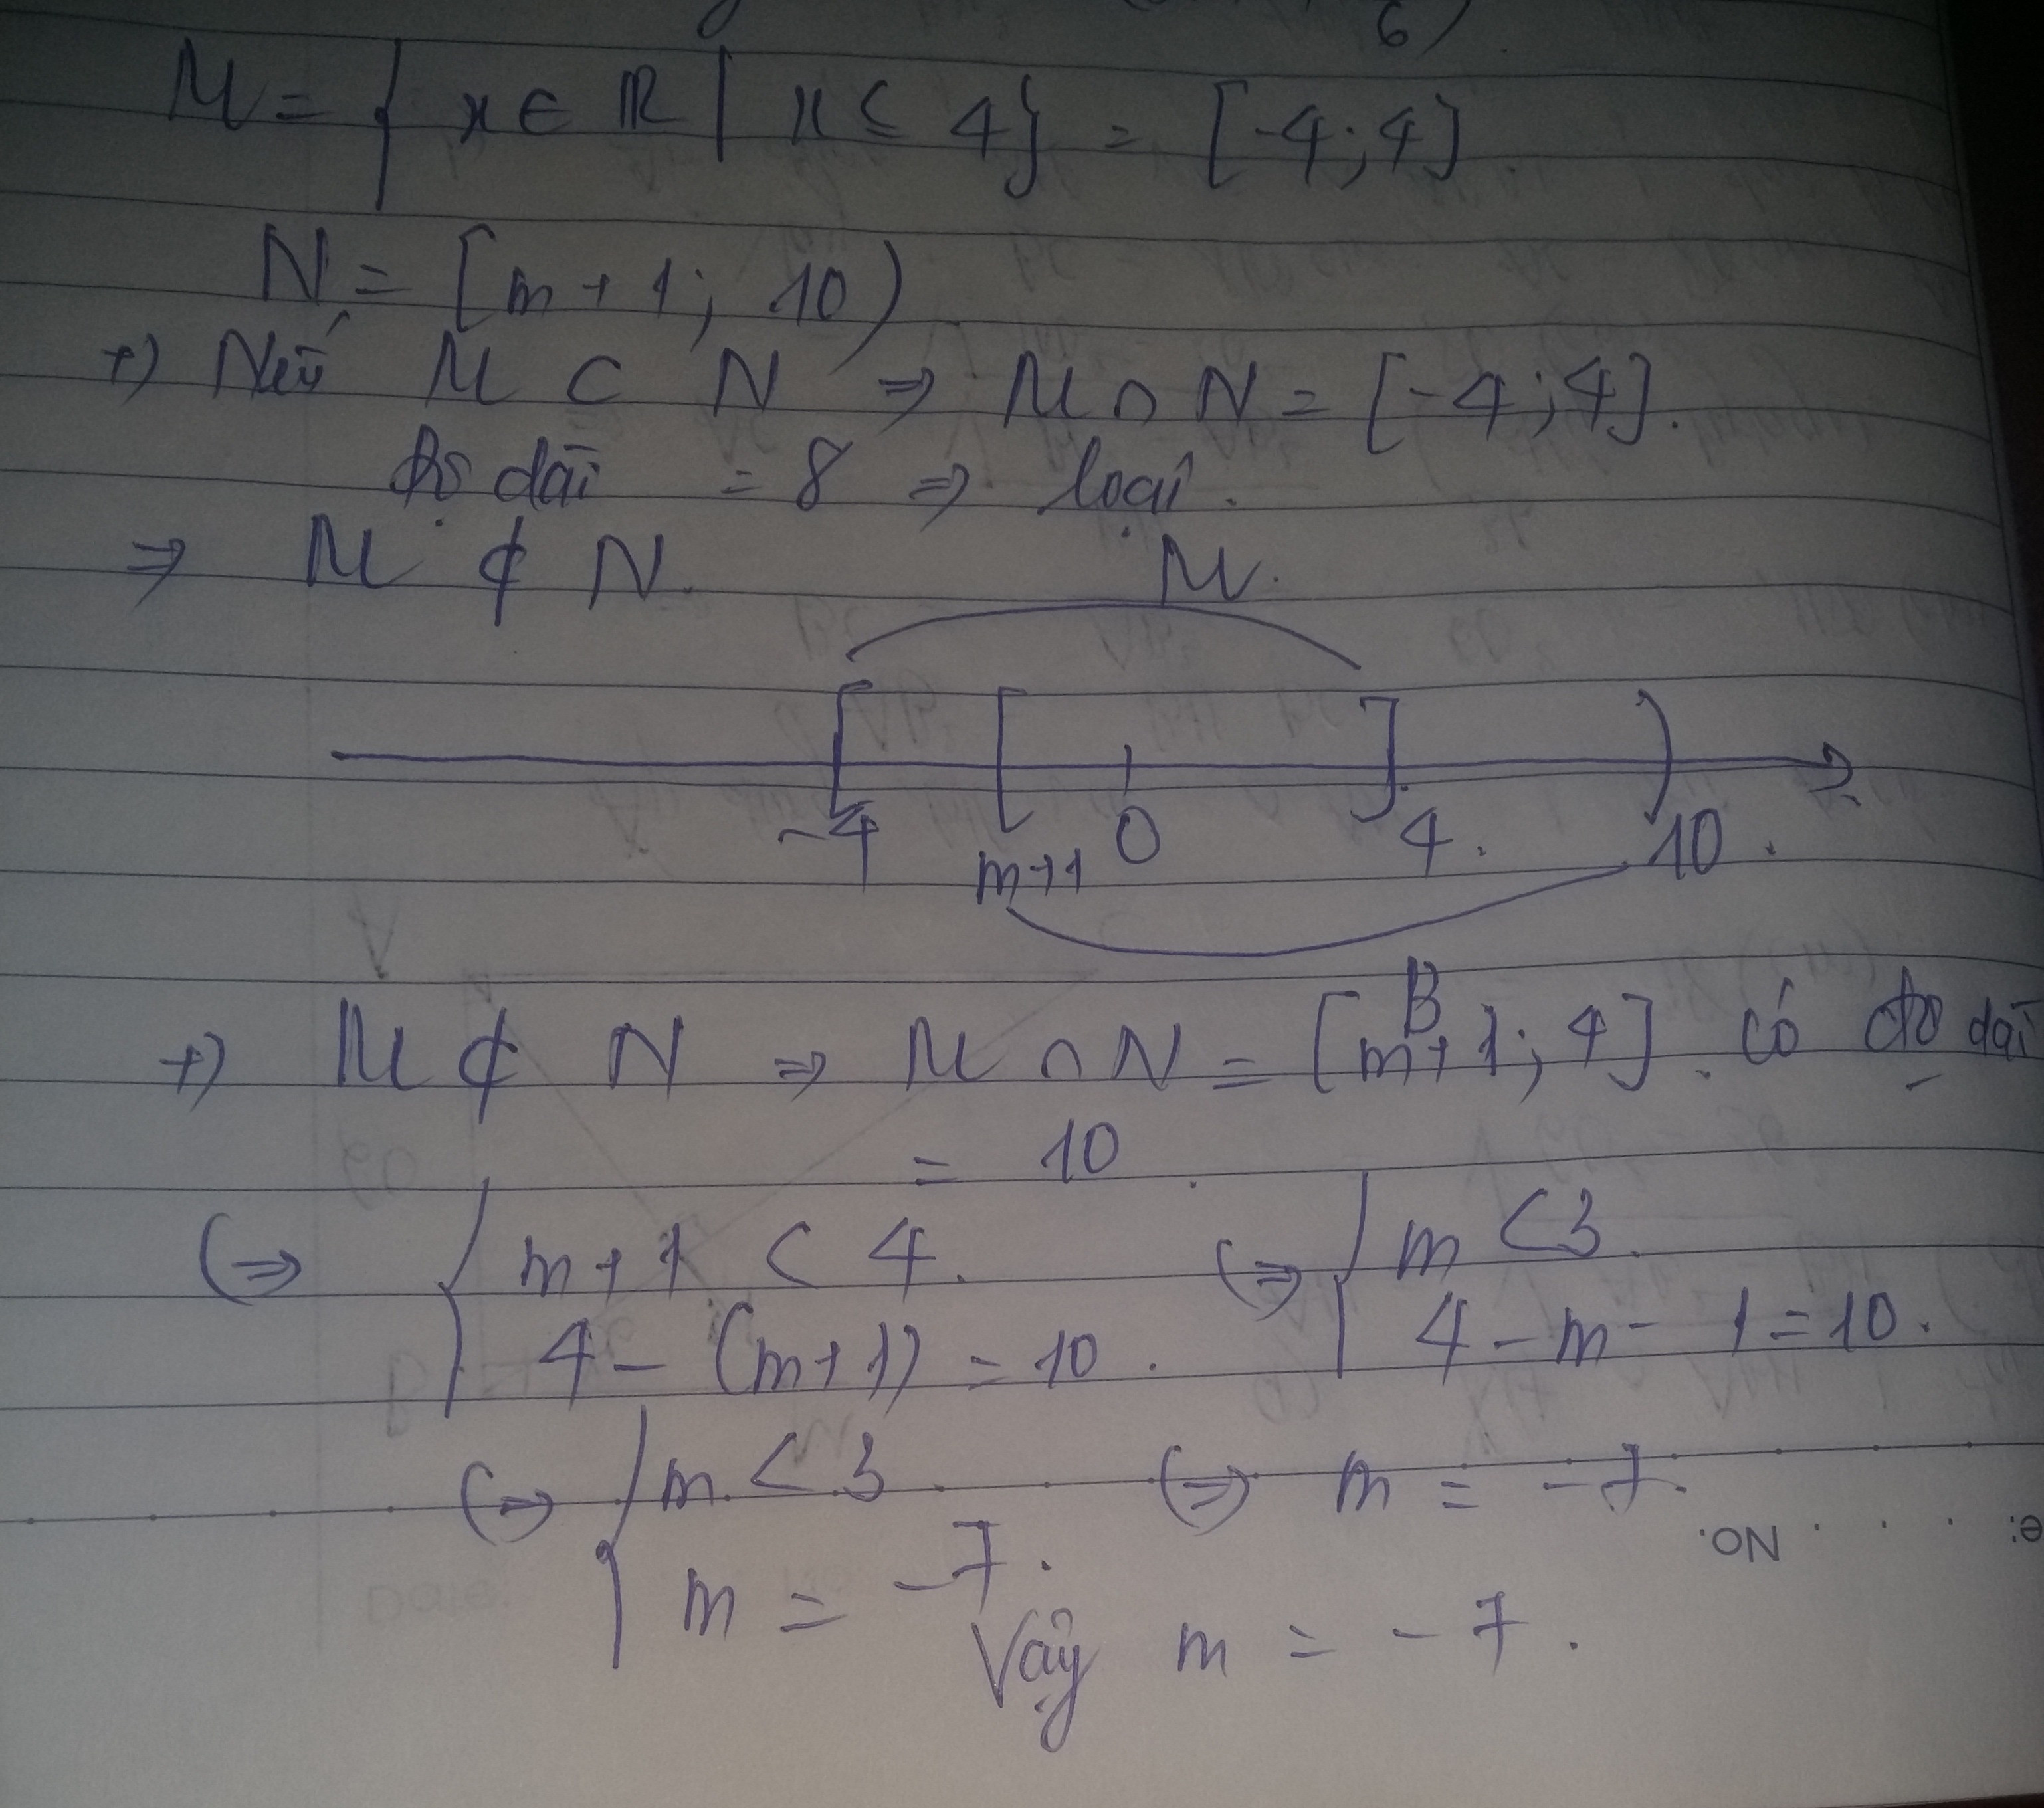 6)
M = { x ∈ ℝ | x ≤ 4} = [-4; 4]
N = [m+1; 10)
+) Nếu M ⊂ N => M ∩ N = [-4; 4].
độ dài = 8 => loại.
=> M ⊄ N. M.
-4 m+1 0 4. 10.
B
+) M ⊄ N => M ∩ N = [m+1; 4]. có độ dài
= 10.
(=> { m+1 < 4. (=> { m < 3.
4 - (m+1) = 10. 4 - m - 1 = 10.
(=> { m < 3 (=> m = -7.
NO.
e:
m = -7.
Vậy m = -7.